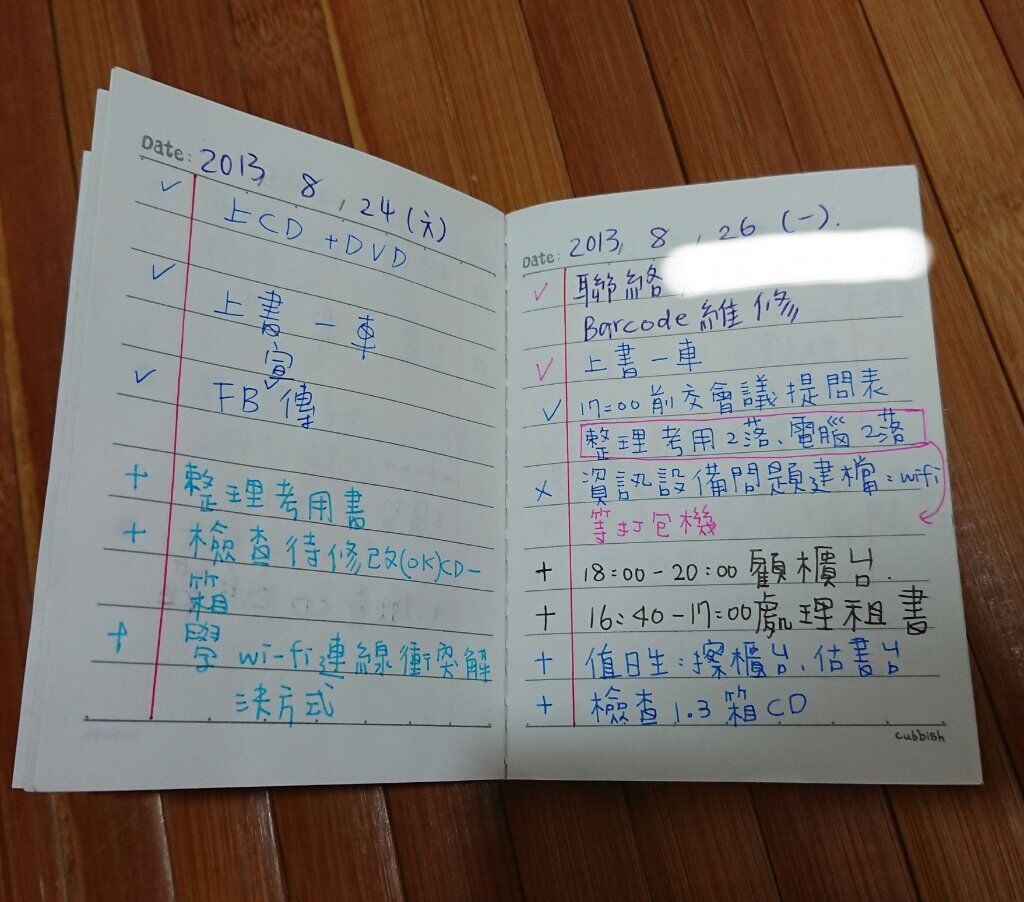 Date: 2013, 8, 24 (六)
✓ 上CD+DVD
✓ 上書一車
✓ FB宣傳
+ 整理考用書
+ 檢查待修改(OK)CD一
箱
+ 學wi-fi連線衝突解
決方式
Date: 2013, 8, 26 (一).
✓ 聯絡
Barcode維修
✓ 上書一車
✓ 17:00前交會議提問表
整理考用2落、電腦2落
× 資訊設備問題建檔:wifi
等打包機
+ 18:00-20:00顧櫃台.
+ 16:40-17:00處理租書
+ 值日生:擦櫃台、估書台
+ 檢查1.3箱CD
cubbish